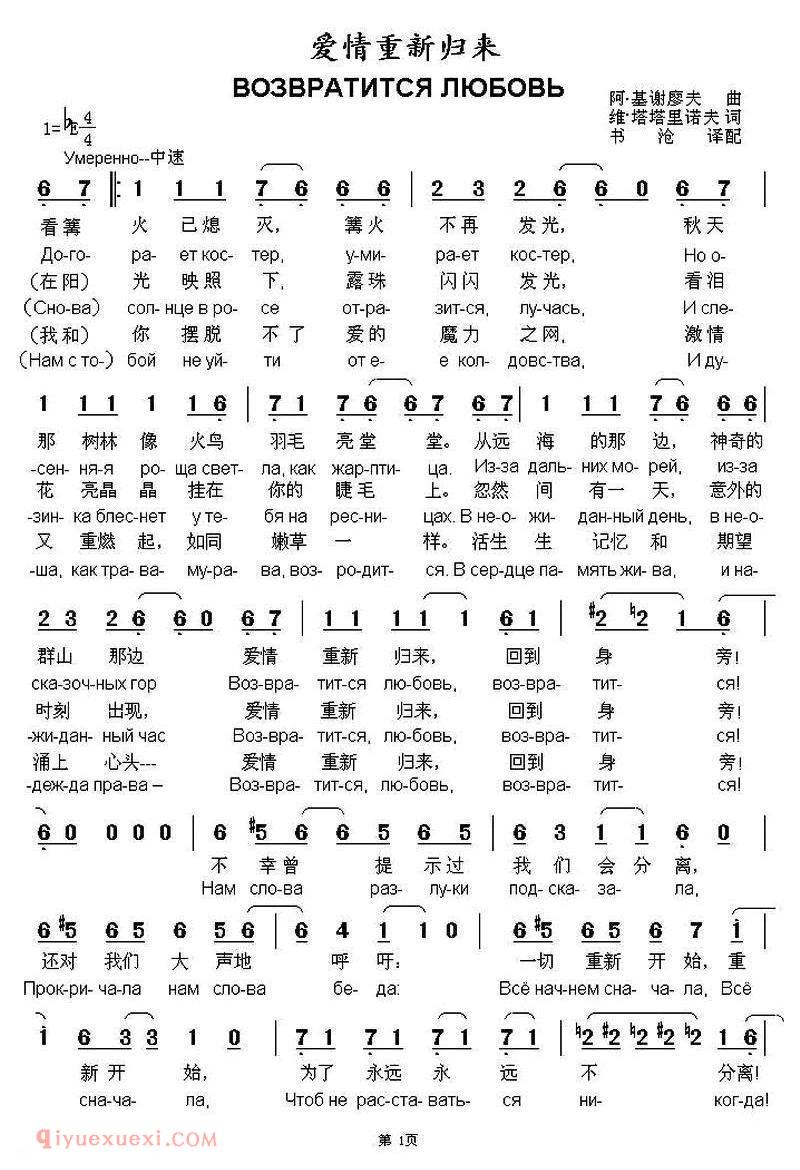 爱情重新归来
ВОЗВРАТИТСЯ ЛЮБОВЬ
阿·基谢廖夫 曲
维·塔塔里诺夫 词
书 沧 译配
1=♭E 4/4
Умеренно--中速
6 7 ‖: 1 1 1 7 6 6 6 | 2 3 2 6 6 0 6 7 |
看篝 火 已熄 灭, 篝火 不再 发光, 秋天
До-го- ра- ет кос- тер, у-ми- рает кос-тер, Но о-
(在阳) 光 映照 下, 露珠 闪闪 发光, 看泪
(Сно-ва) сол-нце в ро- се от-ра- зит-ся, лу-чась, И сле-
(我和) 你 摆脱 不了 爱的 魔力 之网, 激情
(Нам с то-) бой не уй- ти от е- е кол- довс-тва, И ду-
1 1 1 1 1 6 | 7 1 7 6 6 7 6 7 | 1 1 1 7 6 6 6 |
那 树林 像 火鸟 羽毛 亮堂 堂。 从远 海 的那 边, 神奇的
-сен- ня-я ро- ща свет- ла, как жар-пти- ца. Из-за даль- них мо-рей, из-за
花 亮晶 晶 挂在 你的 睫毛 上。 忽然 间 有一 天, 意外的
-зин- ка блес-нет у те- бя на рес-ни- цах. В не-о- жи- дан-ный день, в не-о-
又 重燃 起, 如同 嫩草 一 样。 活生 生 记忆 和 期望
-ша, как тра-ва- му-ра- ва, воз- ро-дит- ся. В сер-дце па- мять жи- ва, и на-
2 3 2 6 6 0 6 7 | 1 1 1 1 1 6 1 | #2 ♮2 1 6 |
群山 那边 爱情 重新 归来, 回到 身 旁!
ска-зоч-ных гор Воз-вра- тит-ся лю-бовь, воз-врат- тит- ся!
时刻 出现, 爱情 重新 归来, 回到 身 旁!
-жи-дан- ный час Воз-вра- тит-ся, лю-бовь, воз-врат- тит- ся!
涌上 心头--- 爱情 重新 归来, 回到 身 旁!
-деж-да пра-ва – Воз-вра- тит-ся, лю-бовь, воз-врат- тит- ся!
6 0 0 0 0 0 | 6 #5 6 6 5 6 5 | 6 3 1 1 6 0 |
不 幸曾 提 示过 我 们 会 分 离,
Нам сло-ва раз- лу-ки под-ска- за- ла,
6 #5 6 5 6 5 6 | 6 4 1 1 0 | 6 #5 6 5 6 7 1 |
还对 我们 大 声地 呼 吁: 一切 重新 开 始, 重
Прок-ри- ча-ла нам сло-ва бе- да: Всё нач-нем сна-ча- ла, Всё
1 6 3 3 1 0 | 7 1 7 1 7 7 1 | ♮2 #2 #2 ♮2 1 6 |
新 开 始, 为了 永远 永 远 不 分离!
сна-ча- ла, Чтоб не рас-ста- вать- ся ни- ког-да!
qiyuexuexi.com
第 1页